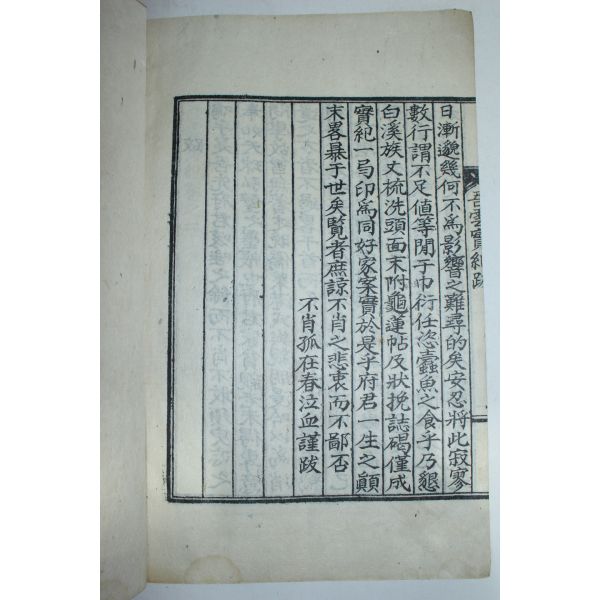 日漸邈幾何不爲影響之難尋的矣安忍將此寂寥
數行謂不足値等閒于巾衍任恣蠹魚之食乎乃懇
白溪族丈梳洗頭面末附龜蓮帖及狀挽誌碣僅成
實紀一局印爲同好家案實於是乎府君一生之顚
末畧暴于世矣覽者庶諒不肖之悲衷而不鄙否
不肖孤在春泣血謹跋
雲實紀跋